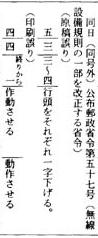 同日(同号外)公布郵政省令第五十七号(無線
設備規則の一部を改正する省令)
(原稿誤り)
五 三 三〜四 行頭をそれぞれ一字下げる。
(印刷誤り)
四 四 終りから一 作動させる 動作させる